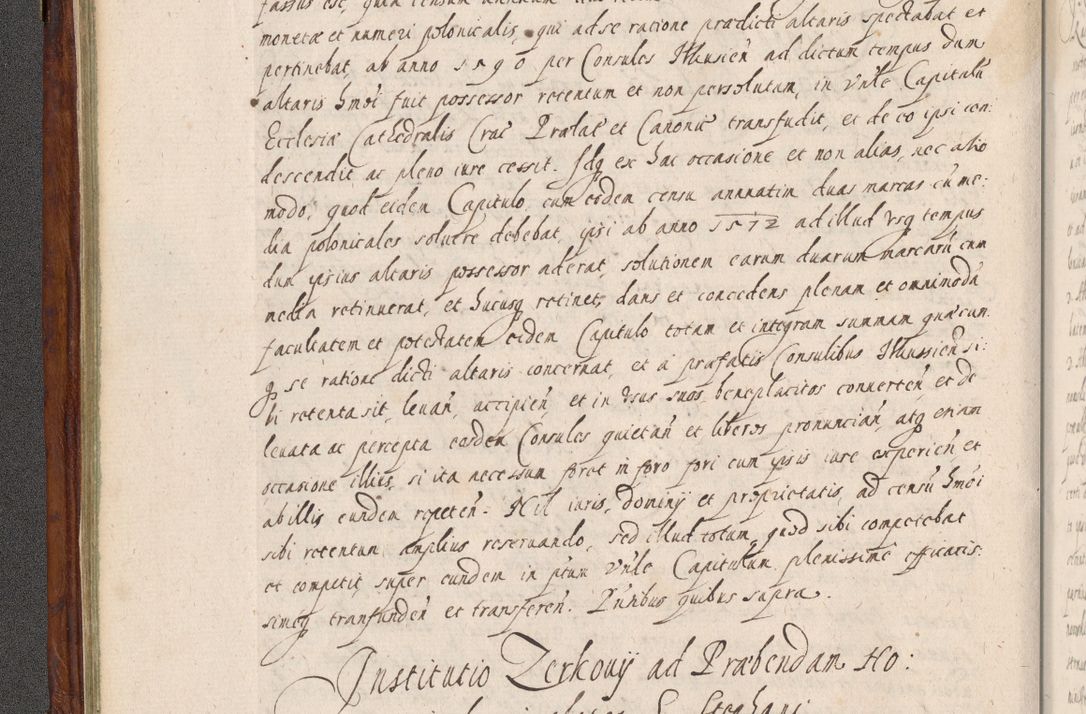 fassus est, quia censum annuum
monetæ et numeri polonicalis, qui ad se ratione prædicti altaris spectabat et
pertinebat, ab anno 1590 per Consules Ilkusien̄ ad dictum tempus dum
altaris hm̄oi fuit possessor retentum et non persolutum, in Vn̄le Capitulū
Ecclesiæ Cathedralis Crac̄ Prælat̄ et Canonic̄ transfudit, et de eo ipsi con:
descendit ac pleno iure cessit. Idq̨ ex hac occasione et non alias, nec alio
modo, quod eidem Capitulo cum eodem censu annuatim duas marcas cū me:
dia polonicales soluere debebat, ipsi ab anno 1572 ad illud vsq̨ tempus
dum ipsius altaris possessor aderat, solutionem earum duarum marcarū cum
media retinuerat, et hucusq̨ retinet, dans et concedens plenam et omnimodā
facultatem et potestatem eidem Capitulo totam et integram summam quæcun:
q̨ se ratione dicti altaris concernat, et a præfatis Consulibus Ilkussien̄ si:
bi retenta sit, leuan̄, accipien̄, et in vsus suos beneplacitos conuerten̄, et de
leuata ac percepta eosdem Consules quietan̄ et liberos pronuncian̄, atq̨ etiam
occasione illius, si ita necessum foret in foro fori cum ipsis iure experien̄ et
ab illis eundem repeten̄. Nil iuris, dominij et proprietatis ad censū hm̄oi
sibi retentum amplius reseruando, sed illud totum, quod sibi competebat
et competit super eundem in ip̄um Vn̄le Capitulum plenissime efficacis:
simeq̨ transfunden̄ et transferen̄. Pn̄tibus quibus supra.
Institutio Zerkouij ad Præbendam Ho:
S. Stephani